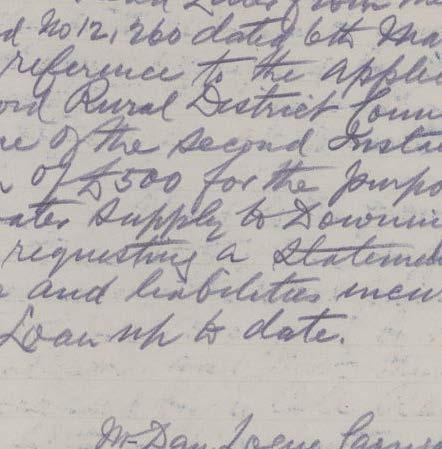 d No 12,260 dated 6th Ma
reference to the appli
ord Rural District Coun
re of the second Insta
of £500 for the purpo
ater supply to Downin
requesting a statemen
and liabilities incur
Loan up to date.
Mr Dan